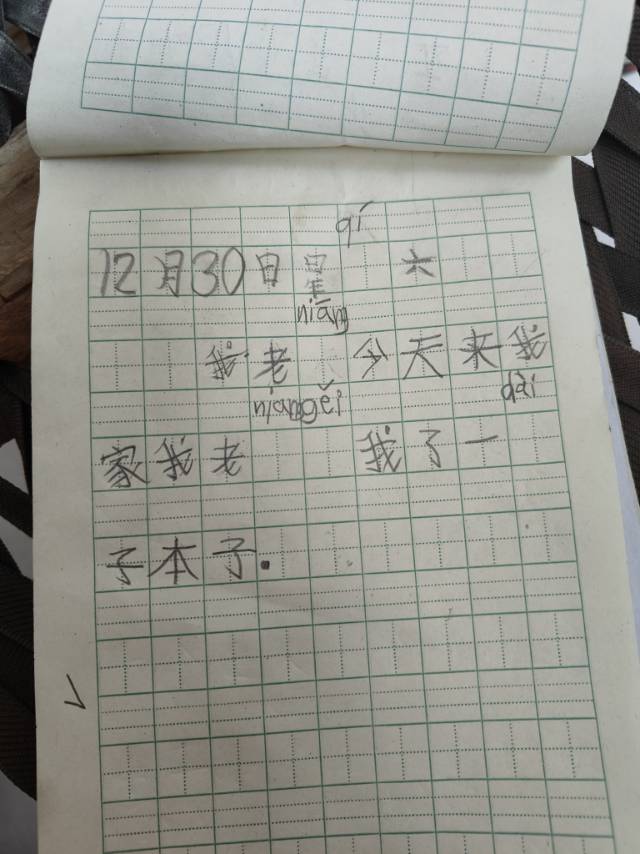 12月30日星qí六
我老niáng今天来我
家我老niánggěi我了一dài
子本子.